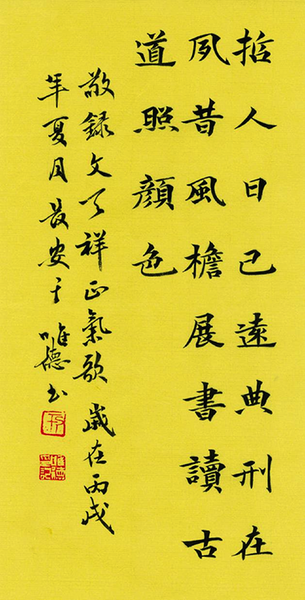 哲人日已遠典刑在
夙昔風檐展書讀古
道照顔色
敬錄文天祥正氣歌 歲在丙戌
年夏月長安于唯德书